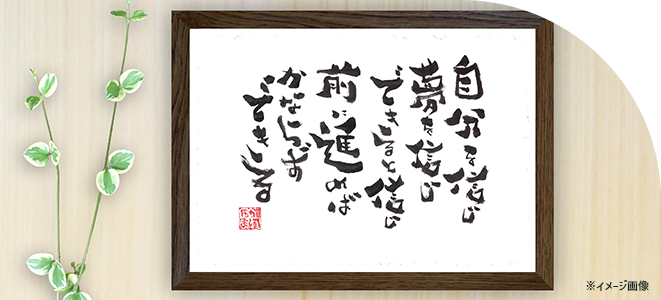 自分を信じ
夢を信じ
できると信じ
前に進めば
かならず
できる
※イメージ画像